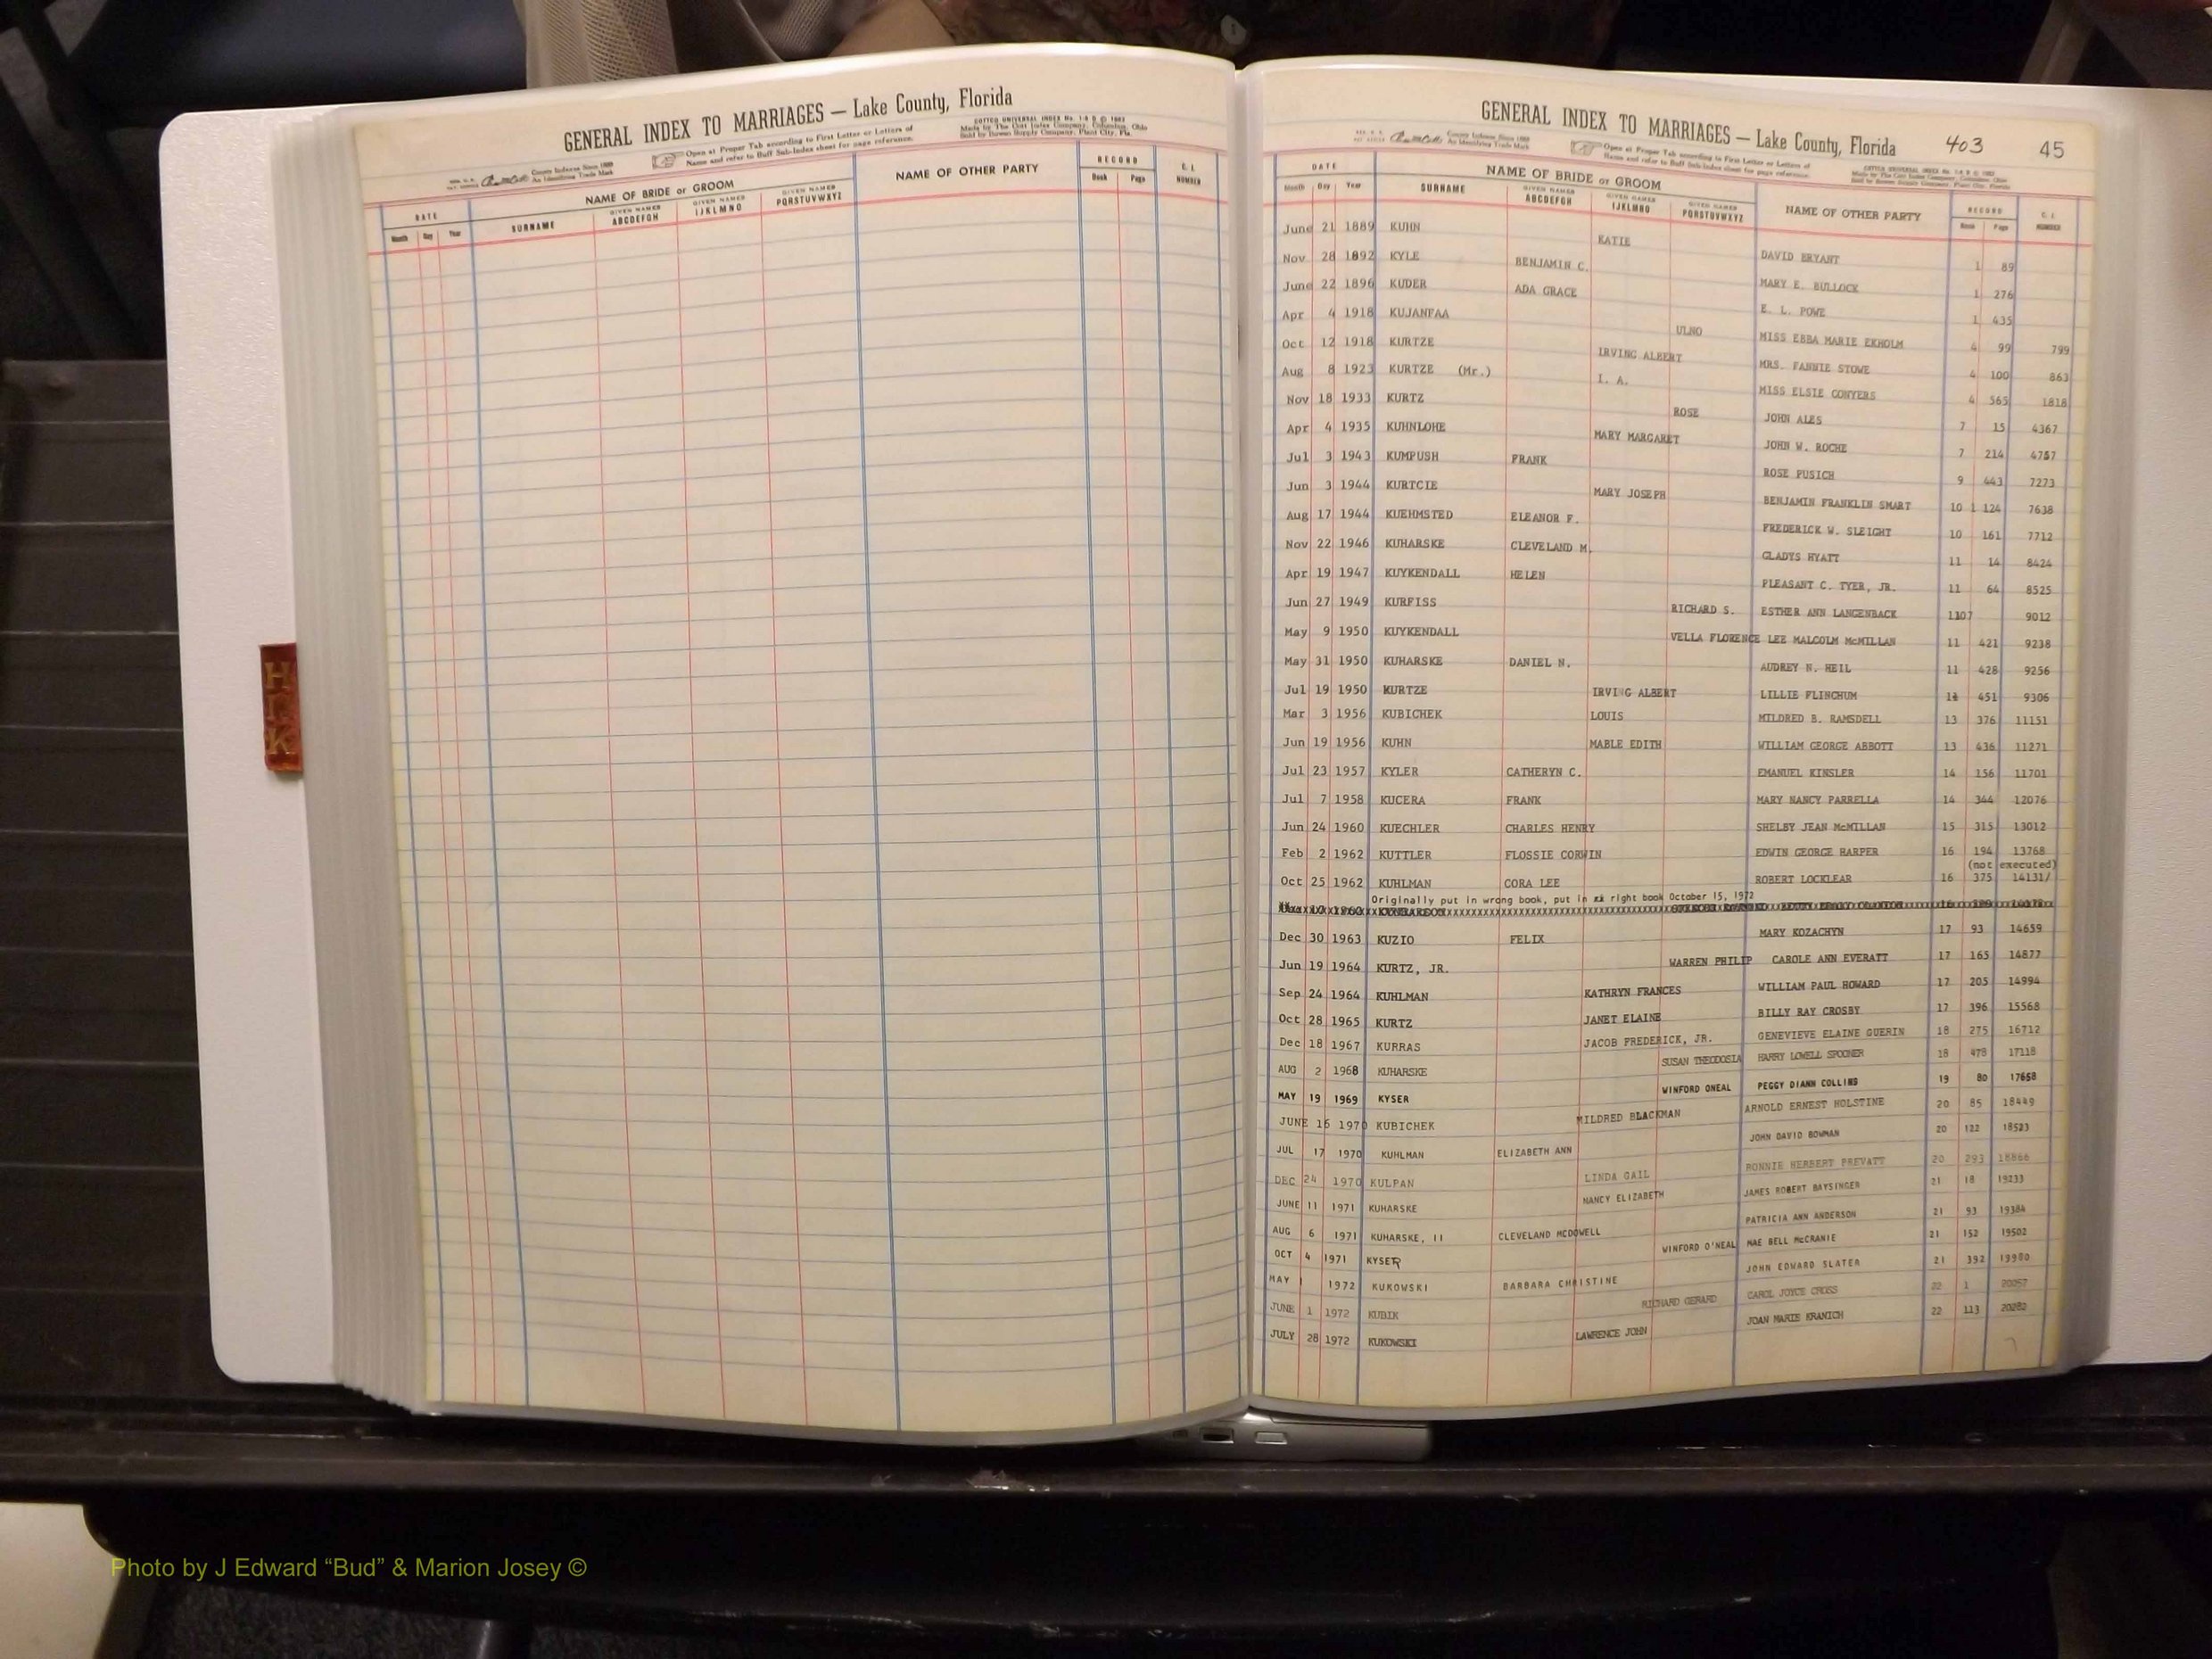 GENERAL INDEX TO MARRIAGES — Lake County, Florida
COTTCO UNIVERSAL INDEX No. 1-A B © 1963
Made by The Cott Index Company, Columbus, Ohio
Sold by Bowen Supply Company, Plant City, Fla.
County Indexes Since 1888
An Identifying Trade Mark
Open at Proper Tab according to First Letter or Letters of
Name and refer to Buff Sub-Index sheet for page reference.
DATE NAME OF BRIDE or GROOM NAME OF OTHER PARTY RECORD C. L. NUMBER
Month Day Year SURNAME GIVEN NAMES ABCDEFGH GIVEN NAMES IJKLMNO GIVEN NAMES PQRSTUVWXYZ Book Page
H
K
GENERAL INDEX TO MARRIAGES — Lake County, Florida 403 45
County Indexes Since 1888
An Identifying Trade Mark
Open at Proper Tab according to First Letter or Letters of
Name and refer to Buff Sub-Index sheet for page reference.
DATE NAME OF BRIDE or GROOM NAME OF OTHER PARTY RECORD NUMBER
Month Day Year SURNAME GIVEN NAMES ABCDEFGH GIVEN NAMES IJKLMNO GIVEN NAMES PQRSTUVWXYZ Book Page
June 21 1889 KUHN KATIE DAVID BRYANT 1 89
Nov 28 1892 KYLE BENJAMIN C. MARY E. BULLOCK 1 276
June 22 1896 KUDER ADA GRACE E. L. POWE 1 435
Apr 4 1918 KUJANFAA ULNO MISS EBBA MARIE EKHOLM 4 99 799
Oct 12 1918 KURTZE IRVING ALBERT MRS. FANNIE STOWE 4 100 863
Aug 8 1923 KURTZE (Mr.) I. A. MISS ELSIE CONYERS 4 565 1818
Nov 18 1933 KURTZ ROSE JOHN ALES 7 15 4367
Apr 4 1935 KUHNLOHE MARY MARGARET JOHN W. ROCHE 7 214 4757
Jul 3 1943 KUMPUSH FRANK ROSE PUSICH 9 443 7273
Jun 3 1944 KURTCIE MARY JOSEPH BENJAMIN FRANKLIN SMART 10 1 124 7638
Aug 17 1944 KUEHMSTED ELEANOR F. FREDERICK W. SLEIGHT 10 161 7712
Nov 22 1946 KUHARSKE CLEVELAND M. GLADYS HYATT 11 14 8424
Apr 19 1947 KUYKENDALL HELEN PLEASANT C. TYER, JR. 11 64 8525
Jun 27 1949 KURFISS RICHARD S. ESTHER ANN LANGENBACK 1107 9012
May 9 1950 KUYKENDALL VELLA FLORENCE LEE MALCOLM McMILLAN 11 421 9238
May 31 1950 KUHARSKE DANIEL N. AUDREY N. HEIL 11 428 9256
Jul 19 1950 KURTZE IRVING ALBERT LILLIE FLINCHUM 11 451 9306
Mar 3 1956 KUBICHEK LOUIS MILDRED B. RAMSDELL 13 376 11151
Jun 19 1956 KUHN MABLE EDITH WILLIAM GEORGE ABBOTT 13 436 11271
Jul 23 1957 KYLER CATHERYN C. EMANUEL KINSLER 14 156 11701
Jul 7 1958 KUCERA FRANK MARY NANCY PARRELLA 14 344 12076
Jun 24 1960 KUECHLER CHARLES HENRY SHELBY JEAN McMILLAN 15 315 13012
Feb 2 1962 KUTTLER FLOSSIE CORWIN EDWIN GEORGE HARPER 16 194 13768
(not executed)
Oct 25 1962 KUHLMAN CORA LEE ROBERT LOCKLEAR 16 375 14131/
Originally put in wrong book, put in xx right book October 15, 1972
Dec 30 1963 KUZIO FELIX MARY KOZACHYN 17 93 14659
Jun 19 1964 KURTZ, JR. WARREN PHILIP CAROLE ANN EVERATT 17 165 14877
Sep 24 1964 KUHLMAN KATHRYN FRANCES WILLIAM PAUL HOWARD 17 205 14994
Oct 28 1965 KURTZ JANET ELAINE BILLY RAY CROSBY 17 396 15568
Dec 18 1967 KURRAS JACOB FREDERICK, JR. GENEVIEVE ELAINE GUERIN 18 275 16712
AUG 2 1968 KUHARSKE SUSAN THEODOSIA HARRY LOWELL SPOONER 18 478 17118
MAY 19 1969 KYSER WINFORD ONEAL PEGGY DIANN COLLINS 19 80 17658
JUNE 16 1970 KUBICHEK MILDRED BLACKMAN ARNOLD ERNEST HOLSTINE 20 85 18449
JUL 17 1970 KUHLMAN ELIZABETH ANN JOHN DAVID BOWMAN 20 122 18523
DEC 24 1970 KULPAN LINDA GAIL RONNIE HERBERT PREVATT 20 293 18866
JUNE 11 1971 KUHARSKE NANCY ELIZABETH JAMES ROBERT BAYSINGER 21 18 19233
AUG 6 1971 KUHARSKE, II CLEVELAND MCDOWELL PATRICIA ANN ANDERSON 21 93 19384
OCT 4 1971 KYSER WINFORD O'NEAL MAE BELL McCRANIE 21 152 19502
MAY 1 1972 KUKOWSKI BARBARA CHRISTINE JOHN EDWARD SLATER 21 392 19980
JUNE 1 1972 KUBIK RICHARD GERARD CAROL JOYCE CROSS 22 1 20057
JULY 28 1972 KUKOWSKI LAWRENCE JOHN JOAN MARIE KRANICH 22 113 20282
Photo by J Edward “Bud” & Marion Josey ©